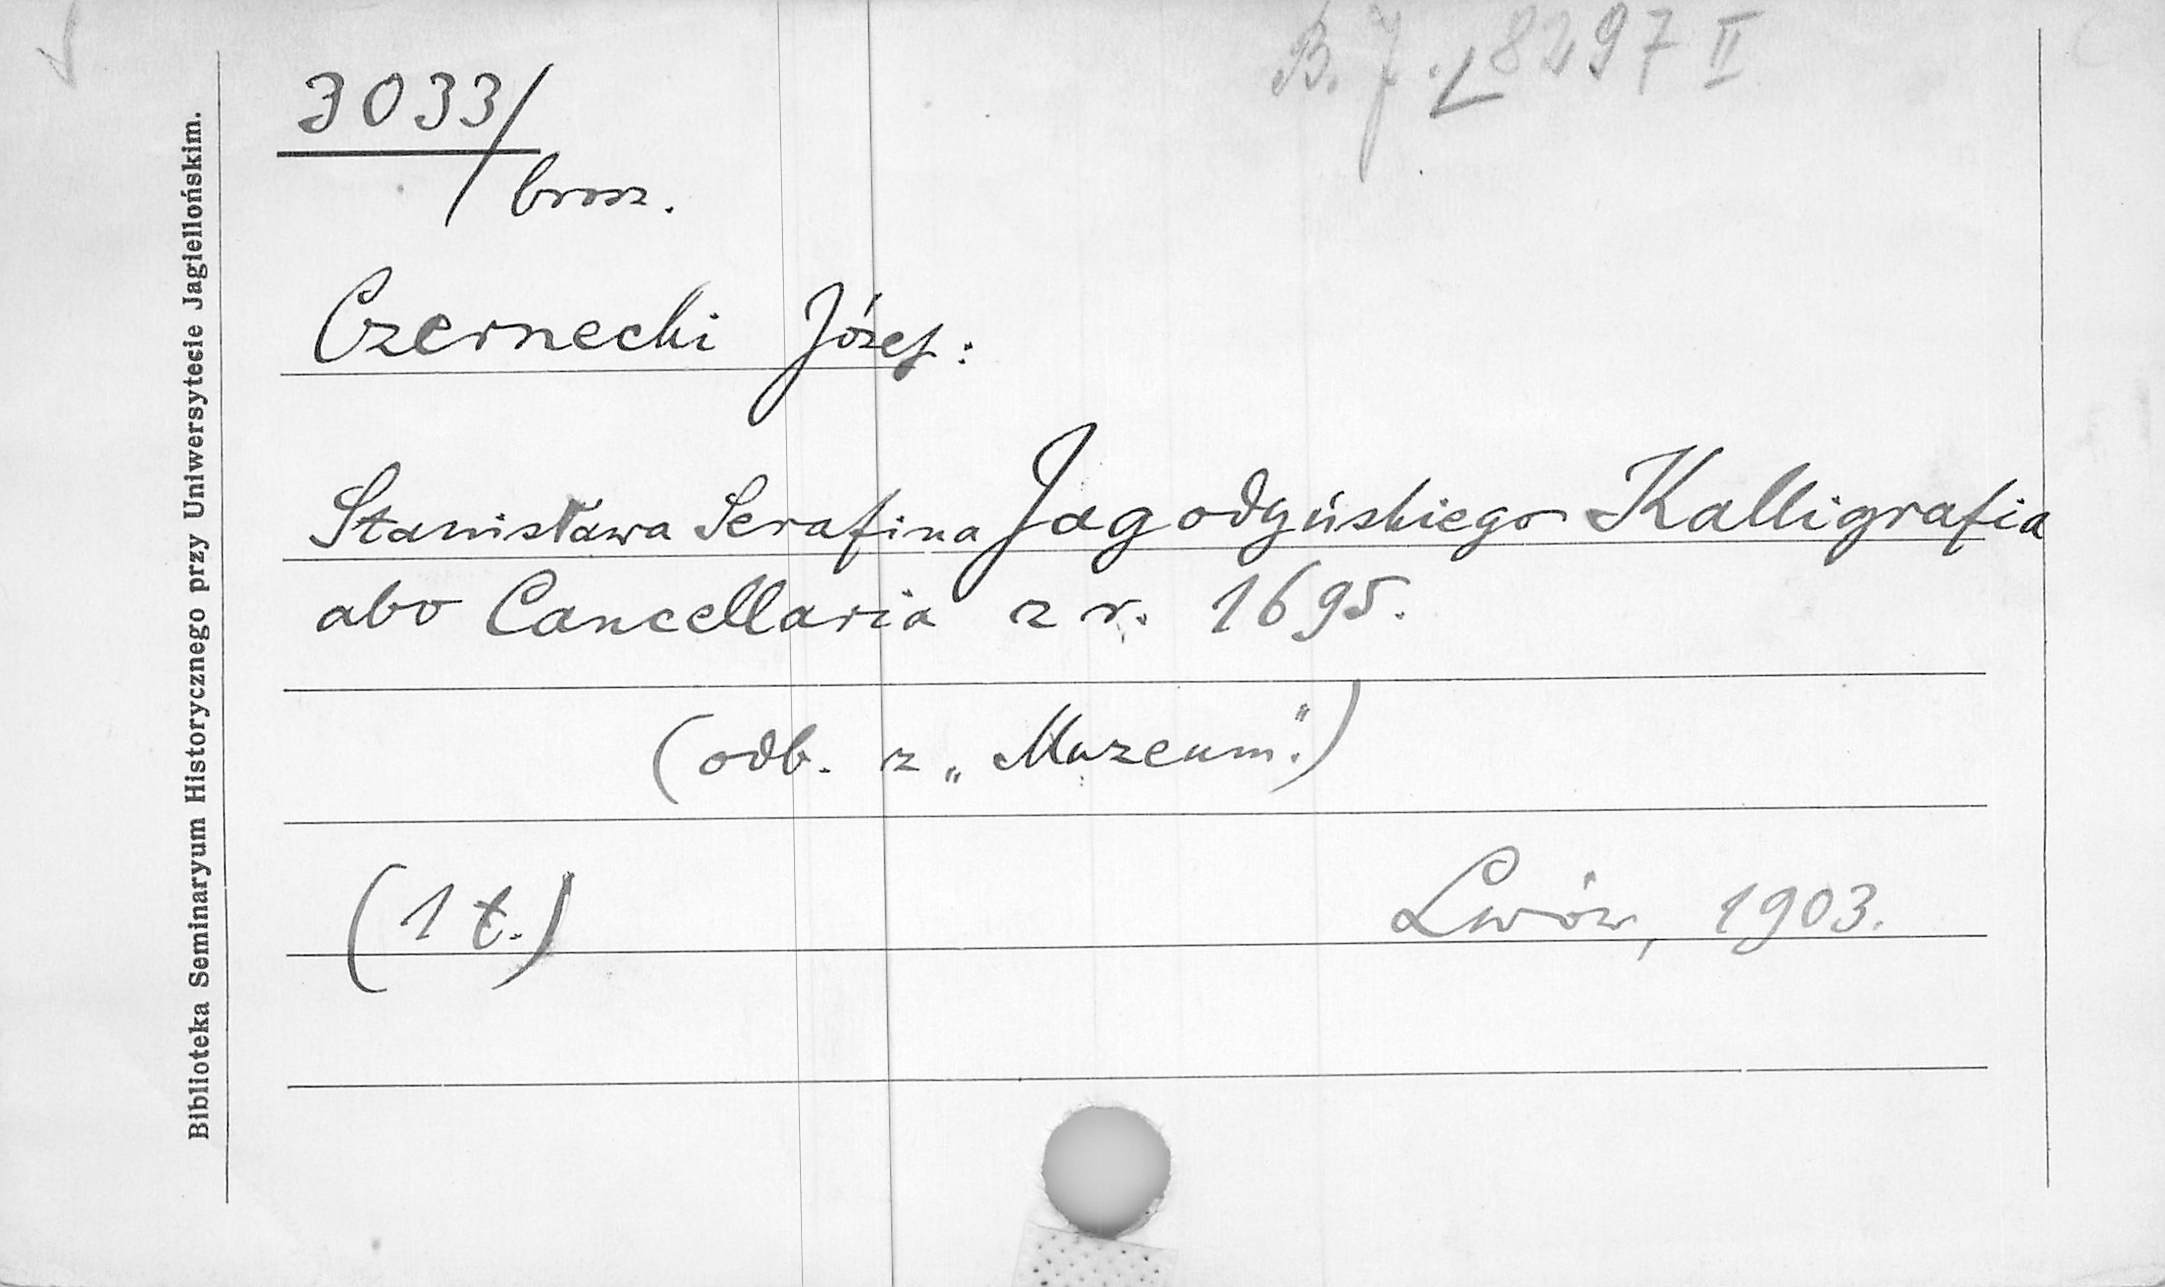 B. J. L 8297 II
3033/
brosz.
Czernecki Józef:
Stanisława Serafina Jagodyńskiego Kalligrafia
abo Cancellaria z r. 1695.
(odb. z „Muzeum".)
(1 t.)
Lwów, 1903.
Biblioteka Seminaryum Historycznego przy Uniwersytecie Jagiellońskim.